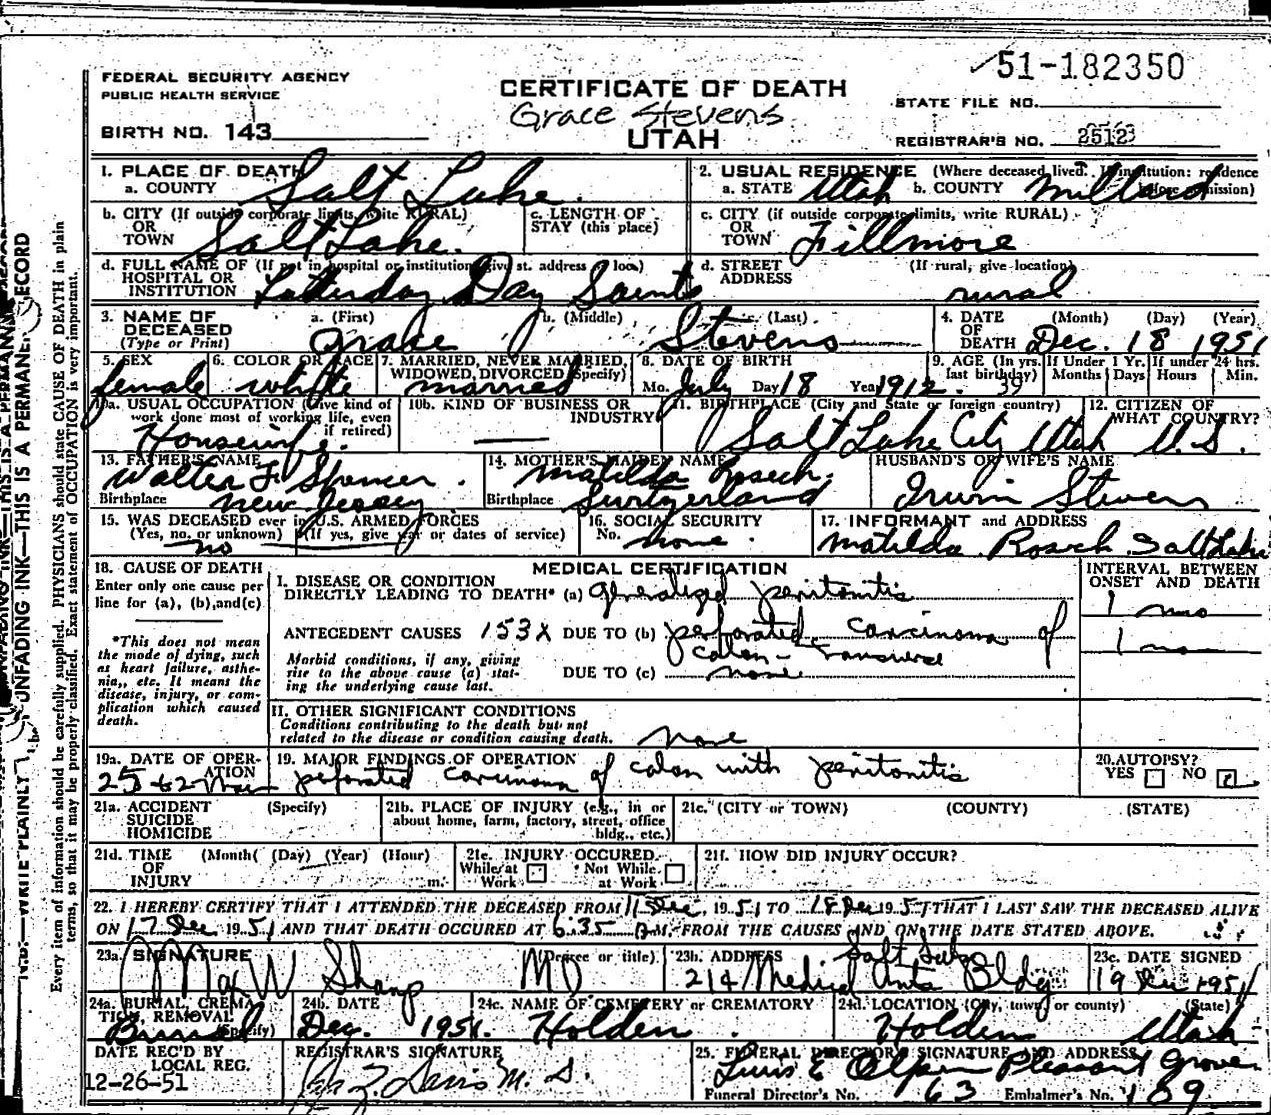 51-182350
FEDERAL SECURITY AGENCY
PUBLIC HEALTH SERVICE
CERTIFICATE OF DEATH
Grace Stevens
UTAH
STATE FILE NO.
BIRTH NO. 143
REGISTRAR'S NO. 2512
1. PLACE OF DEATH
a. COUNTY Salt Lake
2. USUAL RESIDENCE (Where deceased lived. If institution: residence before admission)
a. STATE Utah b. COUNTY Millard
b. CITY (If outside corporate limits, write RURAL) OR TOWN Salt Lake
c. LENGTH OF STAY (this place)
c. CITY (if outside corporate limits, write RURAL) OR TOWN Fillmore
d. FULL NAME OF (If not in hospital or institution, give st. address or loc.) HOSPITAL OR INSTITUTION Latterday Day Saints
d. STREET ADDRESS (If rural, give location) rural
3. NAME OF DECEASED (Type or Print) a. (First) Grace b. (Middle) c. (Last) Stevens
4. DATE OF DEATH (Month) (Day) (Year) Dec. 18 1951
5. SEX female
6. COLOR OR RACE white
7. MARRIED, NEVER MARRIED, WIDOWED, DIVORCED (Specify) married
8. DATE OF BIRTH Mo. July Day 18 Year 1912
9. AGE (In yrs. last birthday) 39 If Under 1 Yr. Months Days If under 24 hrs. Hours Min.
10a. USUAL OCCUPATION (Give kind of work done most of working life, even if retired) Housewife
10b. KIND OF BUSINESS OR INDUSTRY
11. BIRTHPLACE (City and State or foreign country) Salt Lake City Utah
12. CITIZEN OF WHAT COUNTRY? U.S.
13. FATHER'S NAME Walter F. Spencer
Birthplace New Jersey
14. MOTHER'S MAIDEN NAME Matilda Rosech
Birthplace Switzerland
HUSBAND'S OR WIFE'S NAME
Irwin Stevens
15. WAS DECEASED ever in U.S. ARMED FORCES
(Yes, no, or unknown) (If yes, give war or dates of service) no
16. SOCIAL SECURITY No. none
17. INFORMANT and ADDRESS
Matilda Rosech Salt Lake
18. CAUSE OF DEATH
Enter only one cause per line for (a), (b), and (c)
*This does not mean the mode of dying, such as heart failure, asthenia,, etc. It means the disease, injury, or complication which caused death.
MEDICAL CERTIFICATION
INTERVAL BETWEEN ONSET AND DEATH
I. DISEASE OR CONDITION DIRECTLY LEADING TO DEATH* (a) generalized peritonitis 1 mo
ANTECEDENT CAUSES 153X DUE TO (b) perforated carcinoma of colon - transverse 1 mo
Morbid conditions, if any, giving rise to the above cause (a) stating the underlying cause last.
DUE TO (c) none
II. OTHER SIGNIFICANT CONDITIONS
Conditions contributing to the death but not related to the disease or condition causing death. none
19a. DATE OF OPERATION 25
19. MAJOR FINDINGS OF OPERATION
perforated carcinoma of colon with peritonitis
20. AUTOPSY? YES NO
21a. ACCIDENT SUICIDE HOMICIDE (Specify)
21b. PLACE OF INJURY (e.g., in or about home, farm, factory, street, office bldg., etc.)
21c. (CITY or TOWN) (COUNTY) (STATE)
21d. TIME OF INJURY (Month) (Day) (Year) (Hour) m.
21e. INJURY OCCURED While at Work Not While at Work
21f. HOW DID INJURY OCCUR?
22. I HEREBY CERTIFY THAT I ATTENDED THE DECEASED FROM 11 Dec, 1951 TO 18 Dec 1951 THAT I LAST SAW THE DECEASED ALIVE
ON 17 Dec 1951 AND THAT DEATH OCCURED AT 6:35 M. FROM THE CAUSES AND ON THE DATE STATED ABOVE.
23a. SIGNATURE (Degree or title) W Sharp MD
23b. ADDRESS Salt Lake
214 Medical Arts Bldg
23c. DATE SIGNED 19 Dec 1951
24a. BURIAL, CREMATION, REMOVAL (Specify) Burial
24b. DATE Dec. 1951
24c. NAME OF CEMETERY or CREMATORY Holden
24d. LOCATION (City, town, or county) (State) Holden Utah
DATE REC'D BY LOCAL REG.
12-26-51
REGISTRAR'S SIGNATURE
Davis M. D.
25. FUNERAL DIRECTOR'S SIGNATURE AND ADDRESS
Olpin Pleasant Grove
Funeral Director's No. 63 Embalmer's No. 109
N.B.—WRITE PLAINLY UNFADING INK—THIS IS A PERMANENT RECORD
Every item of information should be carefully supplied. PHYSICIANS should state CAUSE OF DEATH in plain
terms, so that it may be properly classified. Exact statement of OCCUPATION is very important.